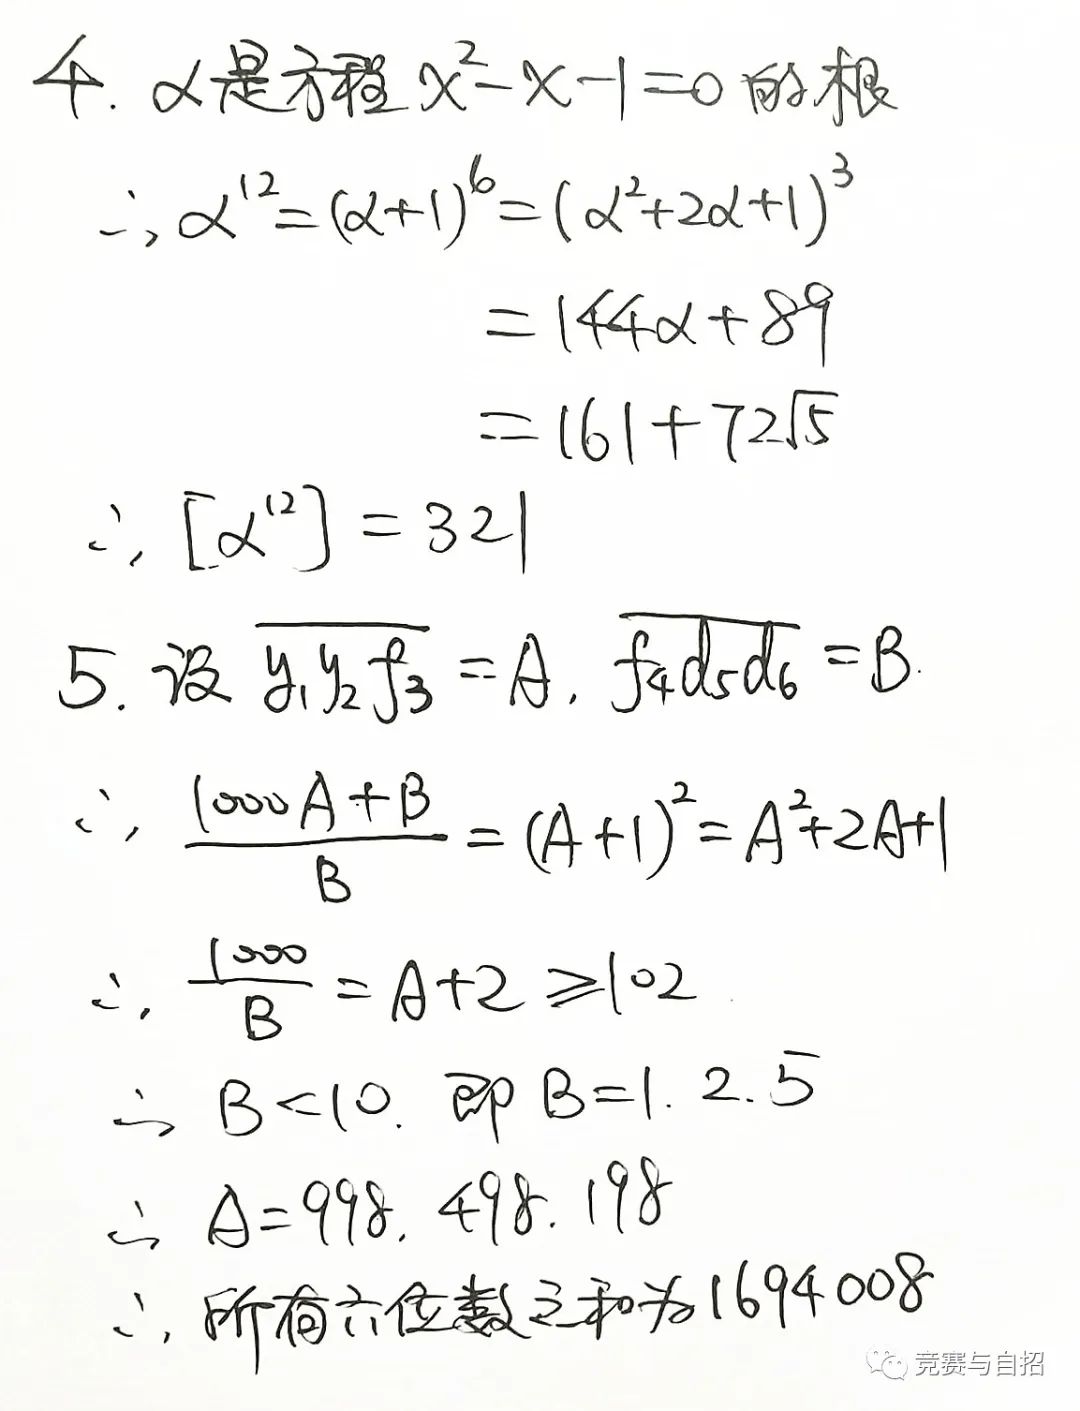 4. α是方程 x²-x-1=0 的根
∴ α¹²=(α+1)⁶=(α²+2α+1)³
=144α+89
=161+72√5
∴ [α¹²]=321
5. 设 y₁y₂f₃=A, f₄d₅d₆=B.
∴ (1000A+B)/B=(A+1)²=A²+2A+1
∴ 1000/B=A+2≥102
∴ B<10. 即 B=1. 2. 5
∴ A=998. 498. 198
∴ 所有六位数之和为1694008
竞赛与自招